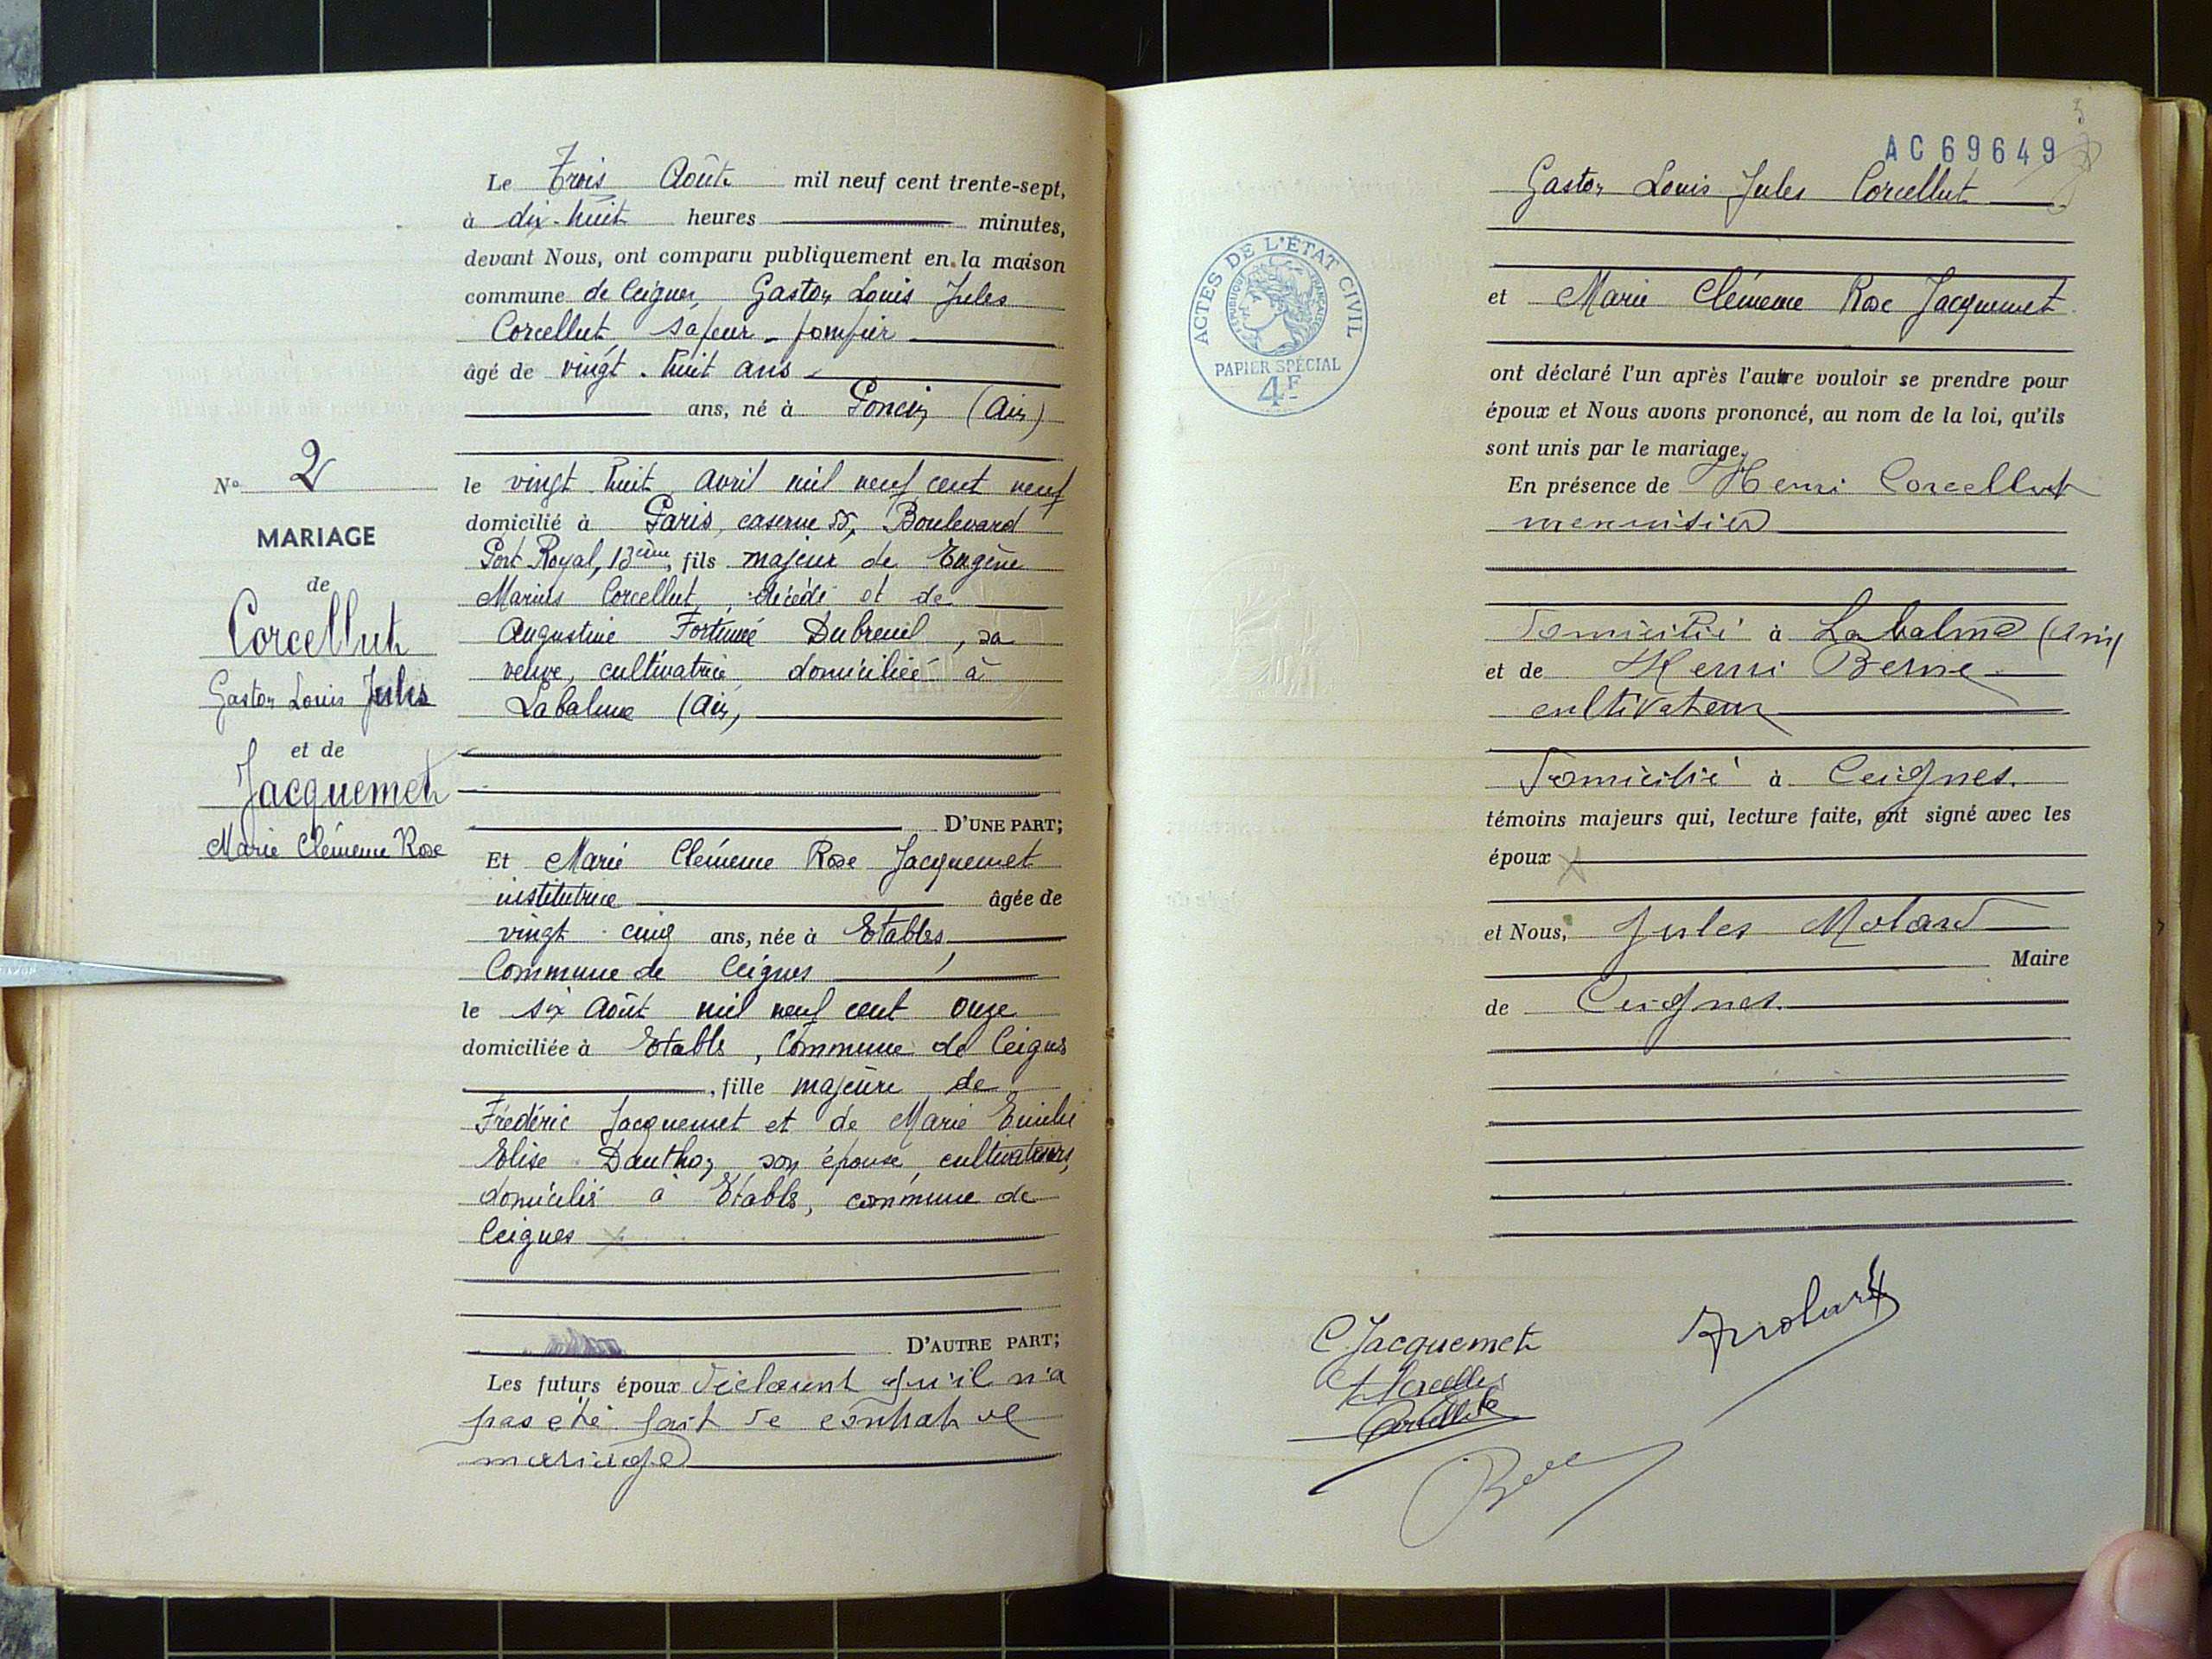 Le Trois Août mil neuf cent trente-sept,
à dix-huit heures minutes,
devant Nous, ont comparu publiquement en la maison
commune de Ceignes, Gaston Louis Jules
Corcellut, sapeur-pompier
âgé de vingt-huit ans
ans, né à Poncin (Ain)
le vingt huit avril mil neuf cent neuf
domicilié à Paris, caserne 55, Boulevard
Port Royal, 13ème, fils majeur de Eugène
Marius Corcellut, décédé et de
Augustine Fortunée Dubreuil, sa
veuve, cultivatrice domiciliée à
Labalme (Ain)
D'UNE PART;
Et Marie Clémence Rose Jacquemet
institutrice âgée de
vingt-cinq ans, née à Etables,
Commune de Ceignes
le six Août mil neuf cent onze
domiciliée à Etables, Commune de Ceignes
, fille majeure de
Frédéric Jacquemet et de Marie Emilie
Elise Danthon, son épouse, cultivateurs,
domiciliés à Etables, commune de
Ceignes
D'AUTRE PART;
Les futurs époux déclarent qu'il n'a
pas été fait de contrat de
mariage
No 2
MARIAGE
de
Corcellut
Gaston Louis Jules
et de
Jacquemet
Marie Clémence Rose
AC 69649
ACTES DE L'ÉTAT CIVIL
RÉPUBLIQUE FRANÇAISE
PAPIER SPÉCIAL
4F
Gaston Louis Jules Corcellut
et Marie Clémence Rose Jacquemet
ont déclaré l'un après l'autre vouloir se prendre pour
époux et Nous avons prononcé, au nom de la loi, qu'ils
sont unis par le mariage.
En présence de Henri Corcellut
menuisier
domicilié à Labalme (Ain)
et de Henri Berne
cultivateur
domicilié à Ceignes.
témoins majeurs qui, lecture faite, ont signé avec les
époux
et Nous, Jules Molard
Maire
de Ceignes.
C Jacquemet
Molard
Corcellut